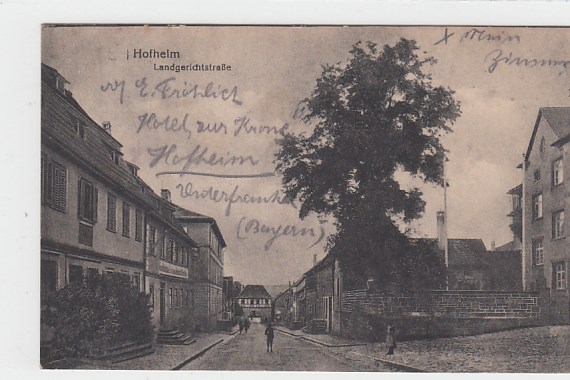 Hofheim
Landgerichtstraße
x Mein
Zimmer
E. Fröhlich
Hotel zur Krone
Hofheim
Unterfranken
(Bayern)